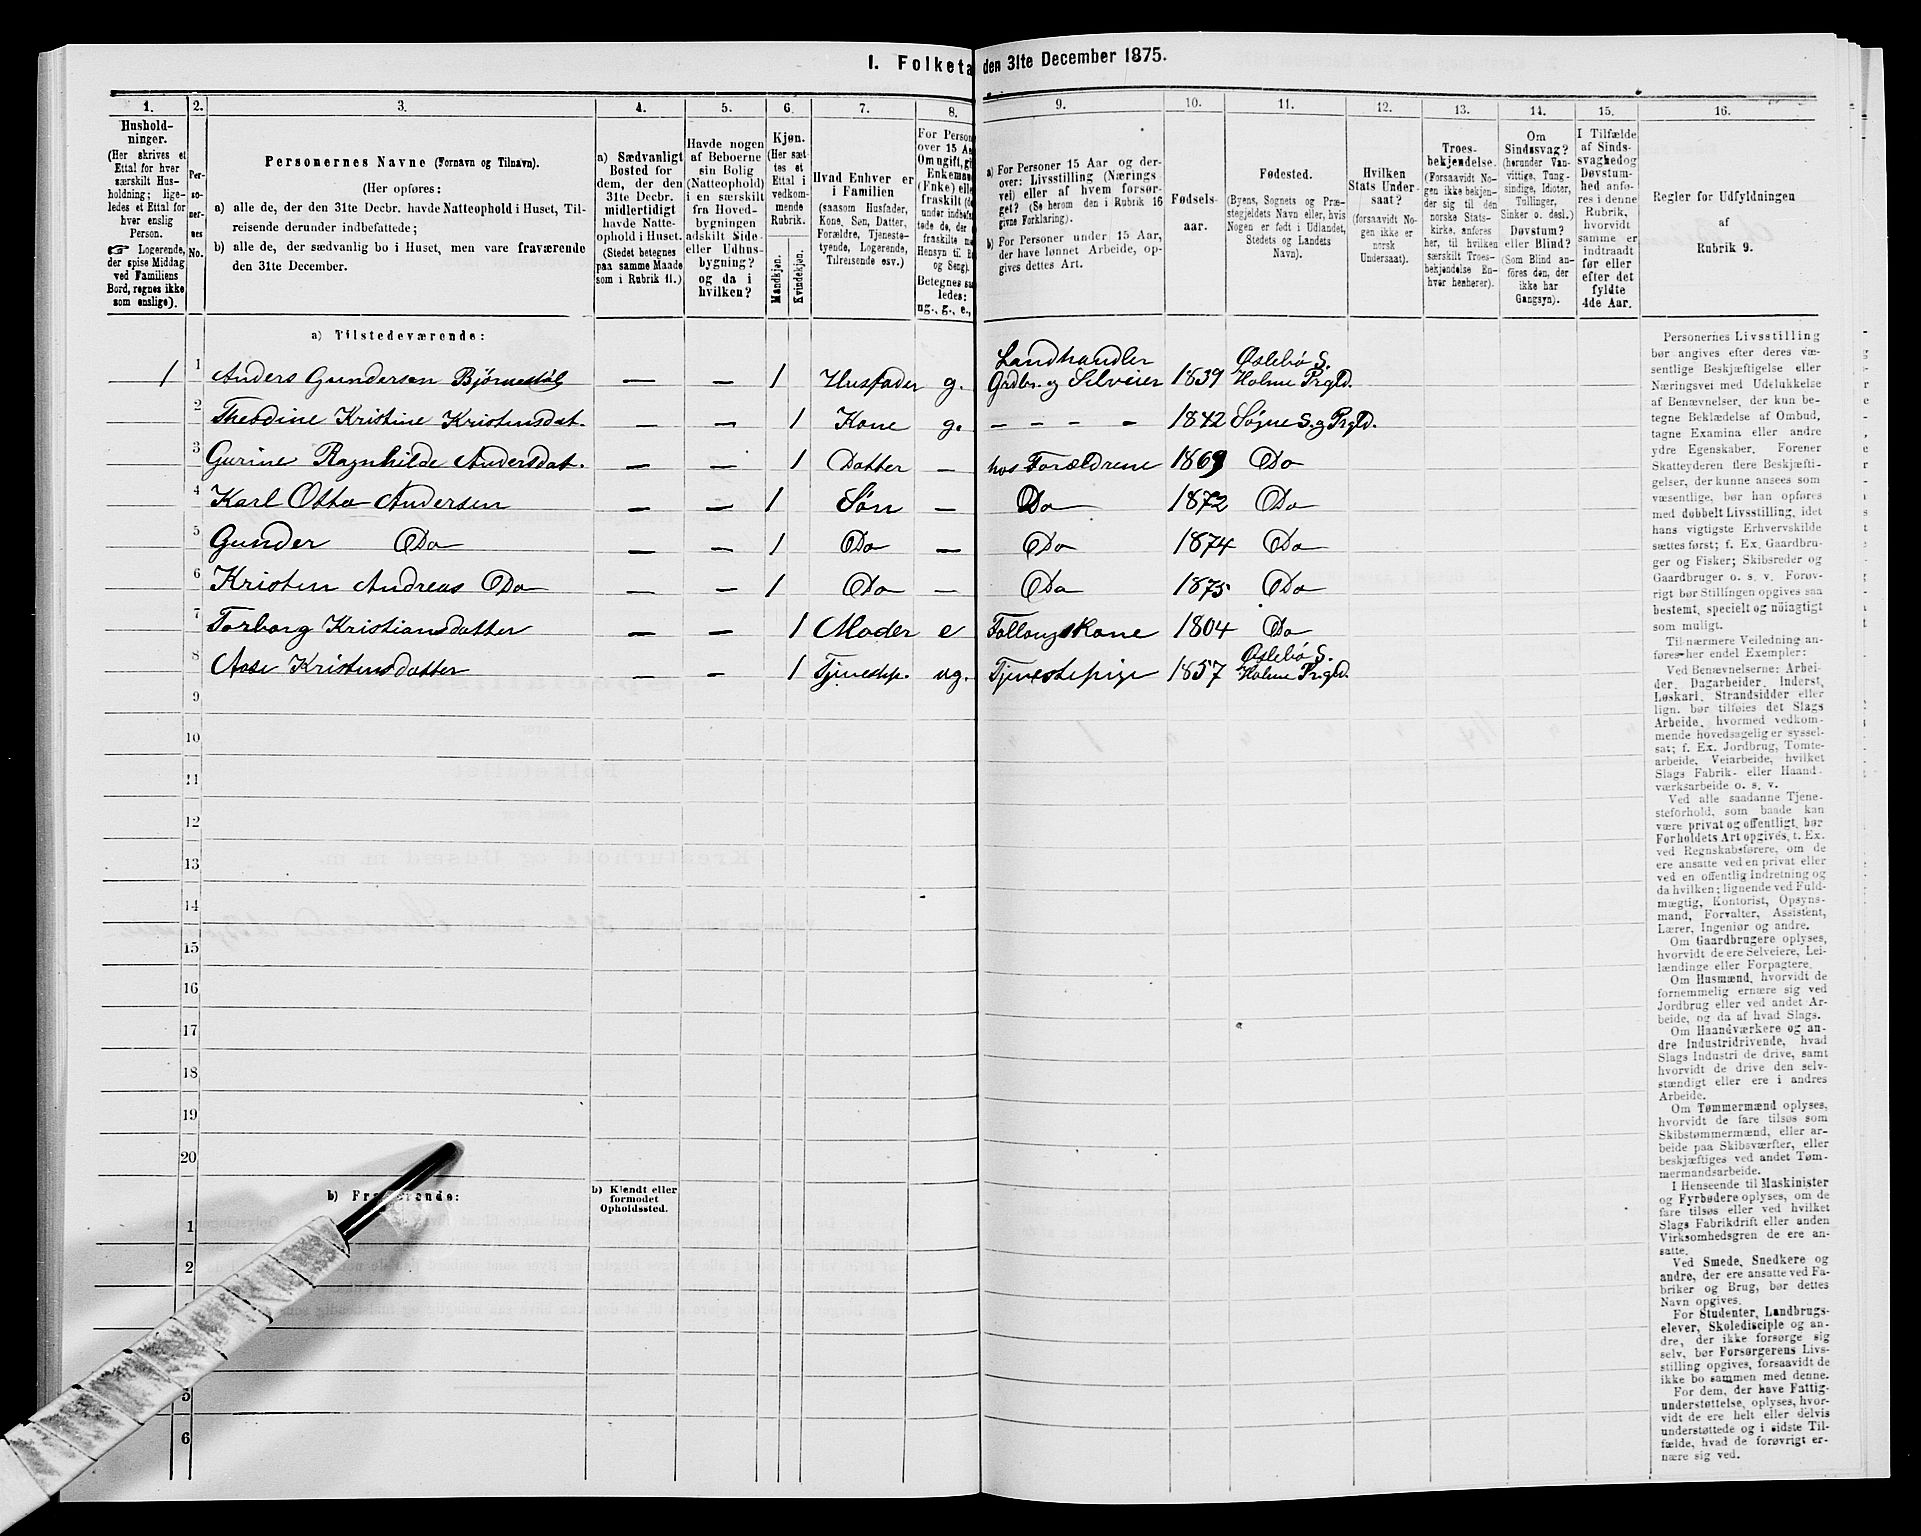 I. Folketa den 31te December 1875.
1. 2. 3. 4. 5. 6. 7. 8. 9. 10. 11. 12. 13. 14. 15. 16.
Hushold-
ninger.
(Her skrives et
Ettal for hver
særskilt Hus-
holdning; lige-
ledes et Ettal for
hver enslig
Person.
☞ Logerende,
der spise Middag
ved Familiens
Bord, regnes ikke
som enslige).
Per-
so-
ner-
nes
No.
Personernes Navne (Fornavn og Tilnavn).
(Her opføres:
a) alle de, der den 31te Decbr. havde Natteophold i Huset, Til-
reisende derunder indbefattede;
b) alle de, der sædvanlig bo i Huset, men vare fraværende
den 31te December.
a) Sædvanligt
Bosted for
dem, der den
31te Decbr.
midlertidigt
havde Natte-
ophold i Huset.
(Stedet betegnes
paa samme Maade
som i Rubrik 11.)
Havde nogen
af Beboerne
sin Bolig
(Natteophold)
i en særskilt
fra Hoved-
bygningen
adskilt Side-
eller Udhus-
bygning?
og da i
hvilken?
Kjøn.
(Her sæt-
tes et
Ettal i
vedkom-
mende
Rubrik.
Mandkjøn.
Kvindekjøn.
Hvad Enhver er
i Familien
(saasom Husfader,
Kone, Søn, Datter,
Forældre, Tjeneste-
tyende, Logerende,
Tilreisende osv.)
For Person
over 15 Aa
Om ugift, gi
Enkemand
(Enke) elle
fraskilt (de
under indbefat
tede de, der
fraskilte me
Hensyn til B
og Seng).
Betegnes saa
ledes:
ug., g., e.,
a) For Personer 15 Aar og der-
over: Livsstilling (Nærings-
vei) eller af hvem forsør-
get? (Se herom den i Rubrik 16
givne Forklaring).
b) For Personer under 15 Aar,
der have lønnet Arbeide, op-
gives dettes Art.
Fødsels-
aar.
Fødested.
(Byens, Sognets og Præ-
stegjeldets Navn eller, hvis
Nogen er født i Udlandet,
Stedets og Landets
Navn).
Hvilken
Stats Under-
saat?
(forsaavidt No-
gen ikke er
norsk
Undersaat).
Troes-
bekjendelse.
(Forsaavidt No-
gen ikke bekjen-
der sig til den
norske Stats-
kirke, anføres
her, til hvilken
særskilt Troes-
bekjendelse En-
hver henhører).
Om
Sindssvag?
(herunder Van-
vittige, Tung-
sindige, Idioter,
Tullinger,
Sinker o. desl.)
Døvstum?
eller Blind?
(Som Blind an-
føres den, der
ikke har
Gangsyn).
I Tilfælde
af Sinds-
svaghed og
Døvstum-
hed anfø-
res i denne
Rubrik,
hvorvidt
samme er
indtraadt
før eller
efter det
fyldte
4de Aar.
Regler for Udfyldningen
af
Rubrik 9.
a) Tilstedeværende:
Landhandler Øslebø S.
1 1 Anders Gundersen Bjørnestøl — — 1 Husfader g. Grdbr. og Selveier 1839 Holme Prgld.
2 Theodine Kristine Kristensdat. — — 1 Kone g. — — — — 1842 Søgne S. og Prgld.
3 Gurine Ragnhilde Andersdat. — — 1 Datter — hos Forældrene 1869 Do
4 Karl Otto Andersen — — 1 Søn — Do 1872 Do
5 Gunder Do — — 1 Do — Do 1874 Do
6 Kristen Andreas Do — — 1 Do — Do 1875 Do
7 Torborg Kristiansdatter — — 1 Moder e 1804 Do
Øslebø S.
8 Aase Kristensdatter — — 1 Tjenestep. ug. Tjenestepige 1857 Holme Prgld.
9
10
11
12
13
14
15
16
17
18
19
20
b) Fra erende:
b) Kjendt eller
formodet
Opholdssted.
1
2
5
6
Personernes Livsstilling
bør angives efter deres væ-
sentlige Beskjæftigelse eller
Næringsvei med Udelukkelse
af Benævnelser, der kun be-
tegne Beklædelse af Ombud,
tagne Examina eller andre
ydre Egenskaber. Forener
Skatteyderen flere Beskjæfti-
gelser, der kunne ansees som
væsentlige, bør han opføres
med dobbelt Livsstilling, idet
hans vigtigste Erhvervskilde
sættes først; f. Ex. Gaardbru-
ger og Fisker; Skibsreder og
Gaardbruger o. s. v. Forøv-
rigt bør Stillingen opgives saa
bestemt, specielt og nöiagtigt
som muligt.
Til nærmere Veiledning an-
føres her endel Exempler:
Ved Benævnelserne: Arbei-
der, Dagarbeider, Inderst,
Løskarl, Strandsidder eller
lign. bør tilføies det Slags
Arbeide, hvormed vedkom-
mende hovedsagelig er syssel-
sat; f. Ex. Jordbrug, Tomte-
arbeide, Veiarbeide, hvilket
Slags Fabrik- eller Haand-
værksarbeide o. s. v.
Ved alle saadanne Tjene-
steforhold, som baade kan
være privat og offentligt, bør
Forholdets Art opgives, t. Ex.
ved Regnskabsførere, om de
ere ansatte ved en privat eller
ved en offentlig Indretning og
da hvilken; lignende ved Fuld-
mægtig, Kontorist, Opsyns-
mand, Forvalter, Assistent,
Lærer, Ingeniør og andre.
Om Gaardbrugere oplyses,
hvorvidt de ere Selveiere, Lei-
lændinge eller Forpagtere.
Om Husmænd, hvorvidt de
fornemmelig ernære sig ved
Jordbrug eller ved andet Ar-
beide, og da af hvad Slags.
Om Haandværkere og an-
dre Industridrivende, hvad
Slags Industri de drive, samt
hvorvidt de drive den selv-
stændigt eller ere i andres
Arbeide.
Om Tømmermænd oplyses,
hvorvidt de fare tilsøs som
Skibstømmermænd, eller ar-
beide paa Skibsværfter, eller
beskjæftiges ved andet Tøm-
mermandsarbeide.
I Henseende til Maskinister
og Fyrbødere oplyses, om de
fare tilsøs eller ved hvilket
Slags Fabrikdrift eller anden
Virksomhedsgren de ere an-
satte.
Ved Smede, Snedkere og
andre, der ere ansatte ved Fa-
briker og Brug, bør dettes
Navn opgives.
For Studenter, Landbrugs-
elever, Skoledisciple og an-
dre, der ikke forsørge sig
selv, bør Forsørgerens Livs-
stilling opgives, forsaavidt de
ikke bo sammen med denne.
For dem, der have Fattig-
understøttelse, oplyses, hvor-
vidt de ere helt eller delvis
understøttede og i sidste Til-
fælde, hvad de forøvrigt er-
nære sig ved.